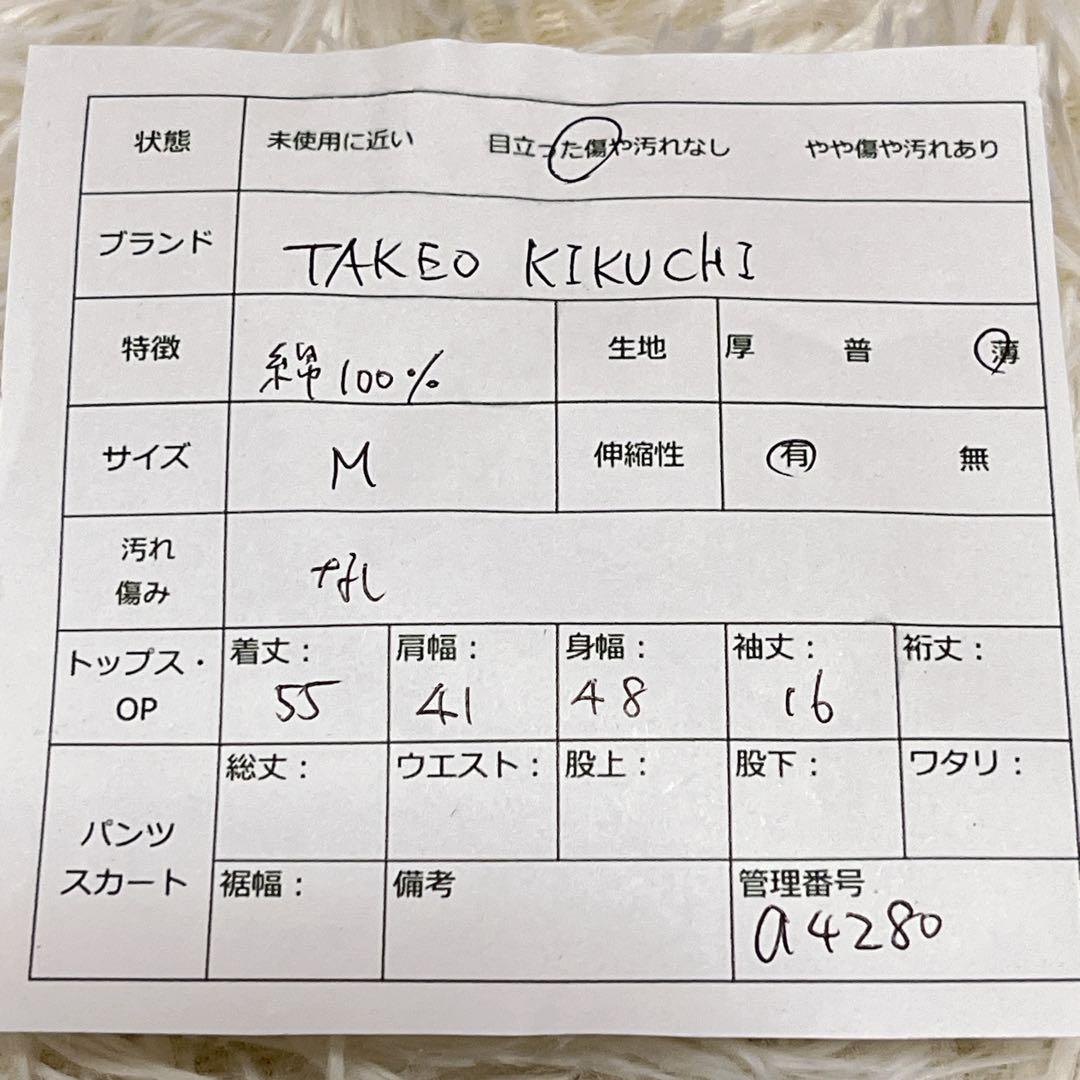 状態 未使用に近い 目立った傷や汚れなし やや傷や汚れあり
ブランド TAKEO KIKUCHI
特徴 綿100% 生地 厚 普 薄
サイズ M 伸縮性 有 無
汚れ
傷み なし
トップス・
OP
着丈: 肩幅: 身幅: 袖丈: 裄丈:
55 41 48 16
パンツ
スカート
総丈: ウエスト: 股上: 股下: ワタリ:
裾幅: 備考 管理番号
a4280